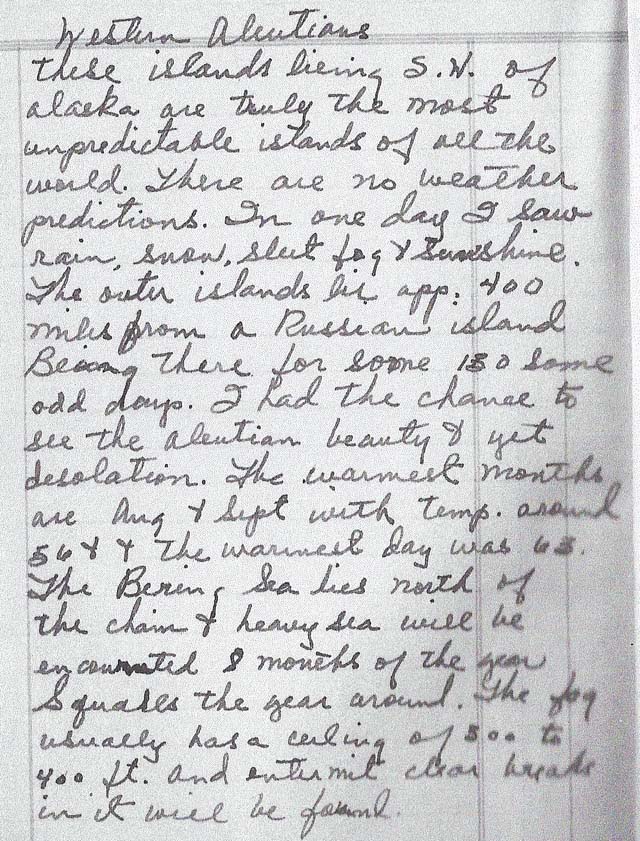 Western Aleutians
These islands lieing S.W. of
alaska are truly the most
unpredictable islands of all the
world. There are no weather
predictions. In one day I saw
rain, snow, sleet fog & Sunshine.
The outer islands lie app: 400
miles from a Russian island
Being there for some 130 some
odd days. I had the chance to
see the aleutian beauty & yet
desolation. The warmest months
are Aug & Sept with temp. around
56 & the warmest day was 63.
The Bering Sea lies north of
the chain & heavy sea will be
8 months of the year
Squalls the year around. The fog
usually has a ceiling of 300 to
400 ft. and clear breaks
in it will be found.